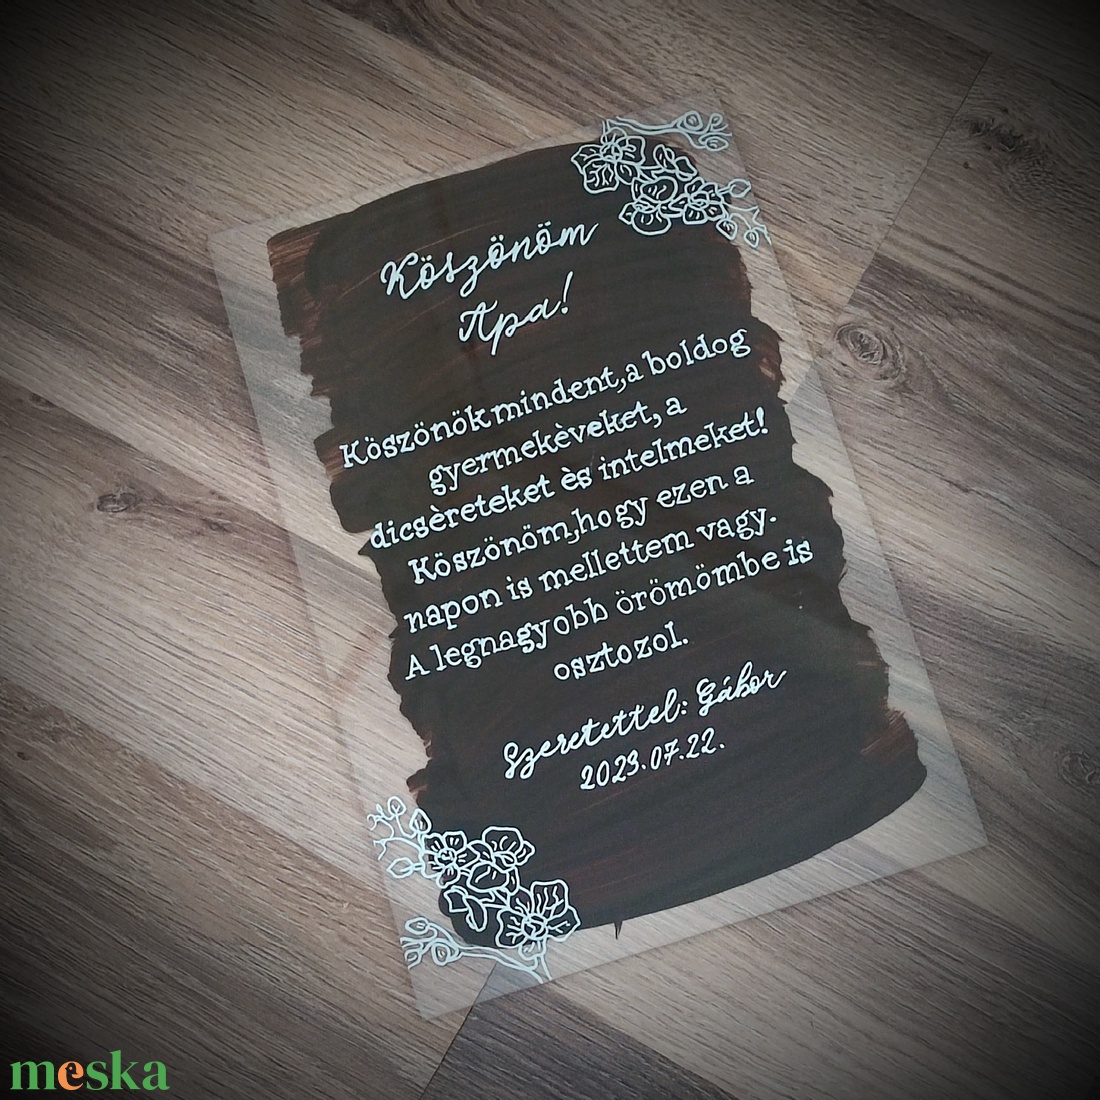 Köszönöm
Apa!
Köszönök mindent, a boldog
gyermekèveket, a
dicsèreteket ès intelmeket!
Köszönöm, hogy ezen a
napon is mellettem vagy.
A legnagyobb örömömbe is
osztozol.
Szeretettel: Gábor
2023.07.22.
meska